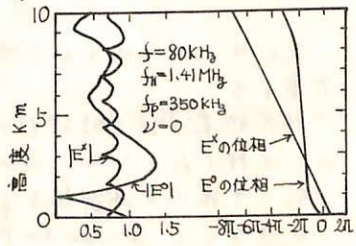 10
5
0
高度 km
f=80KHz
fH=1.41MHz
fp=350KHz
ν=0
|Eˣ|
|E⁰|
Eˣの位相
E⁰の位相
0.5 1.0 1.5
-8π -6π -4π -2π 0 2π